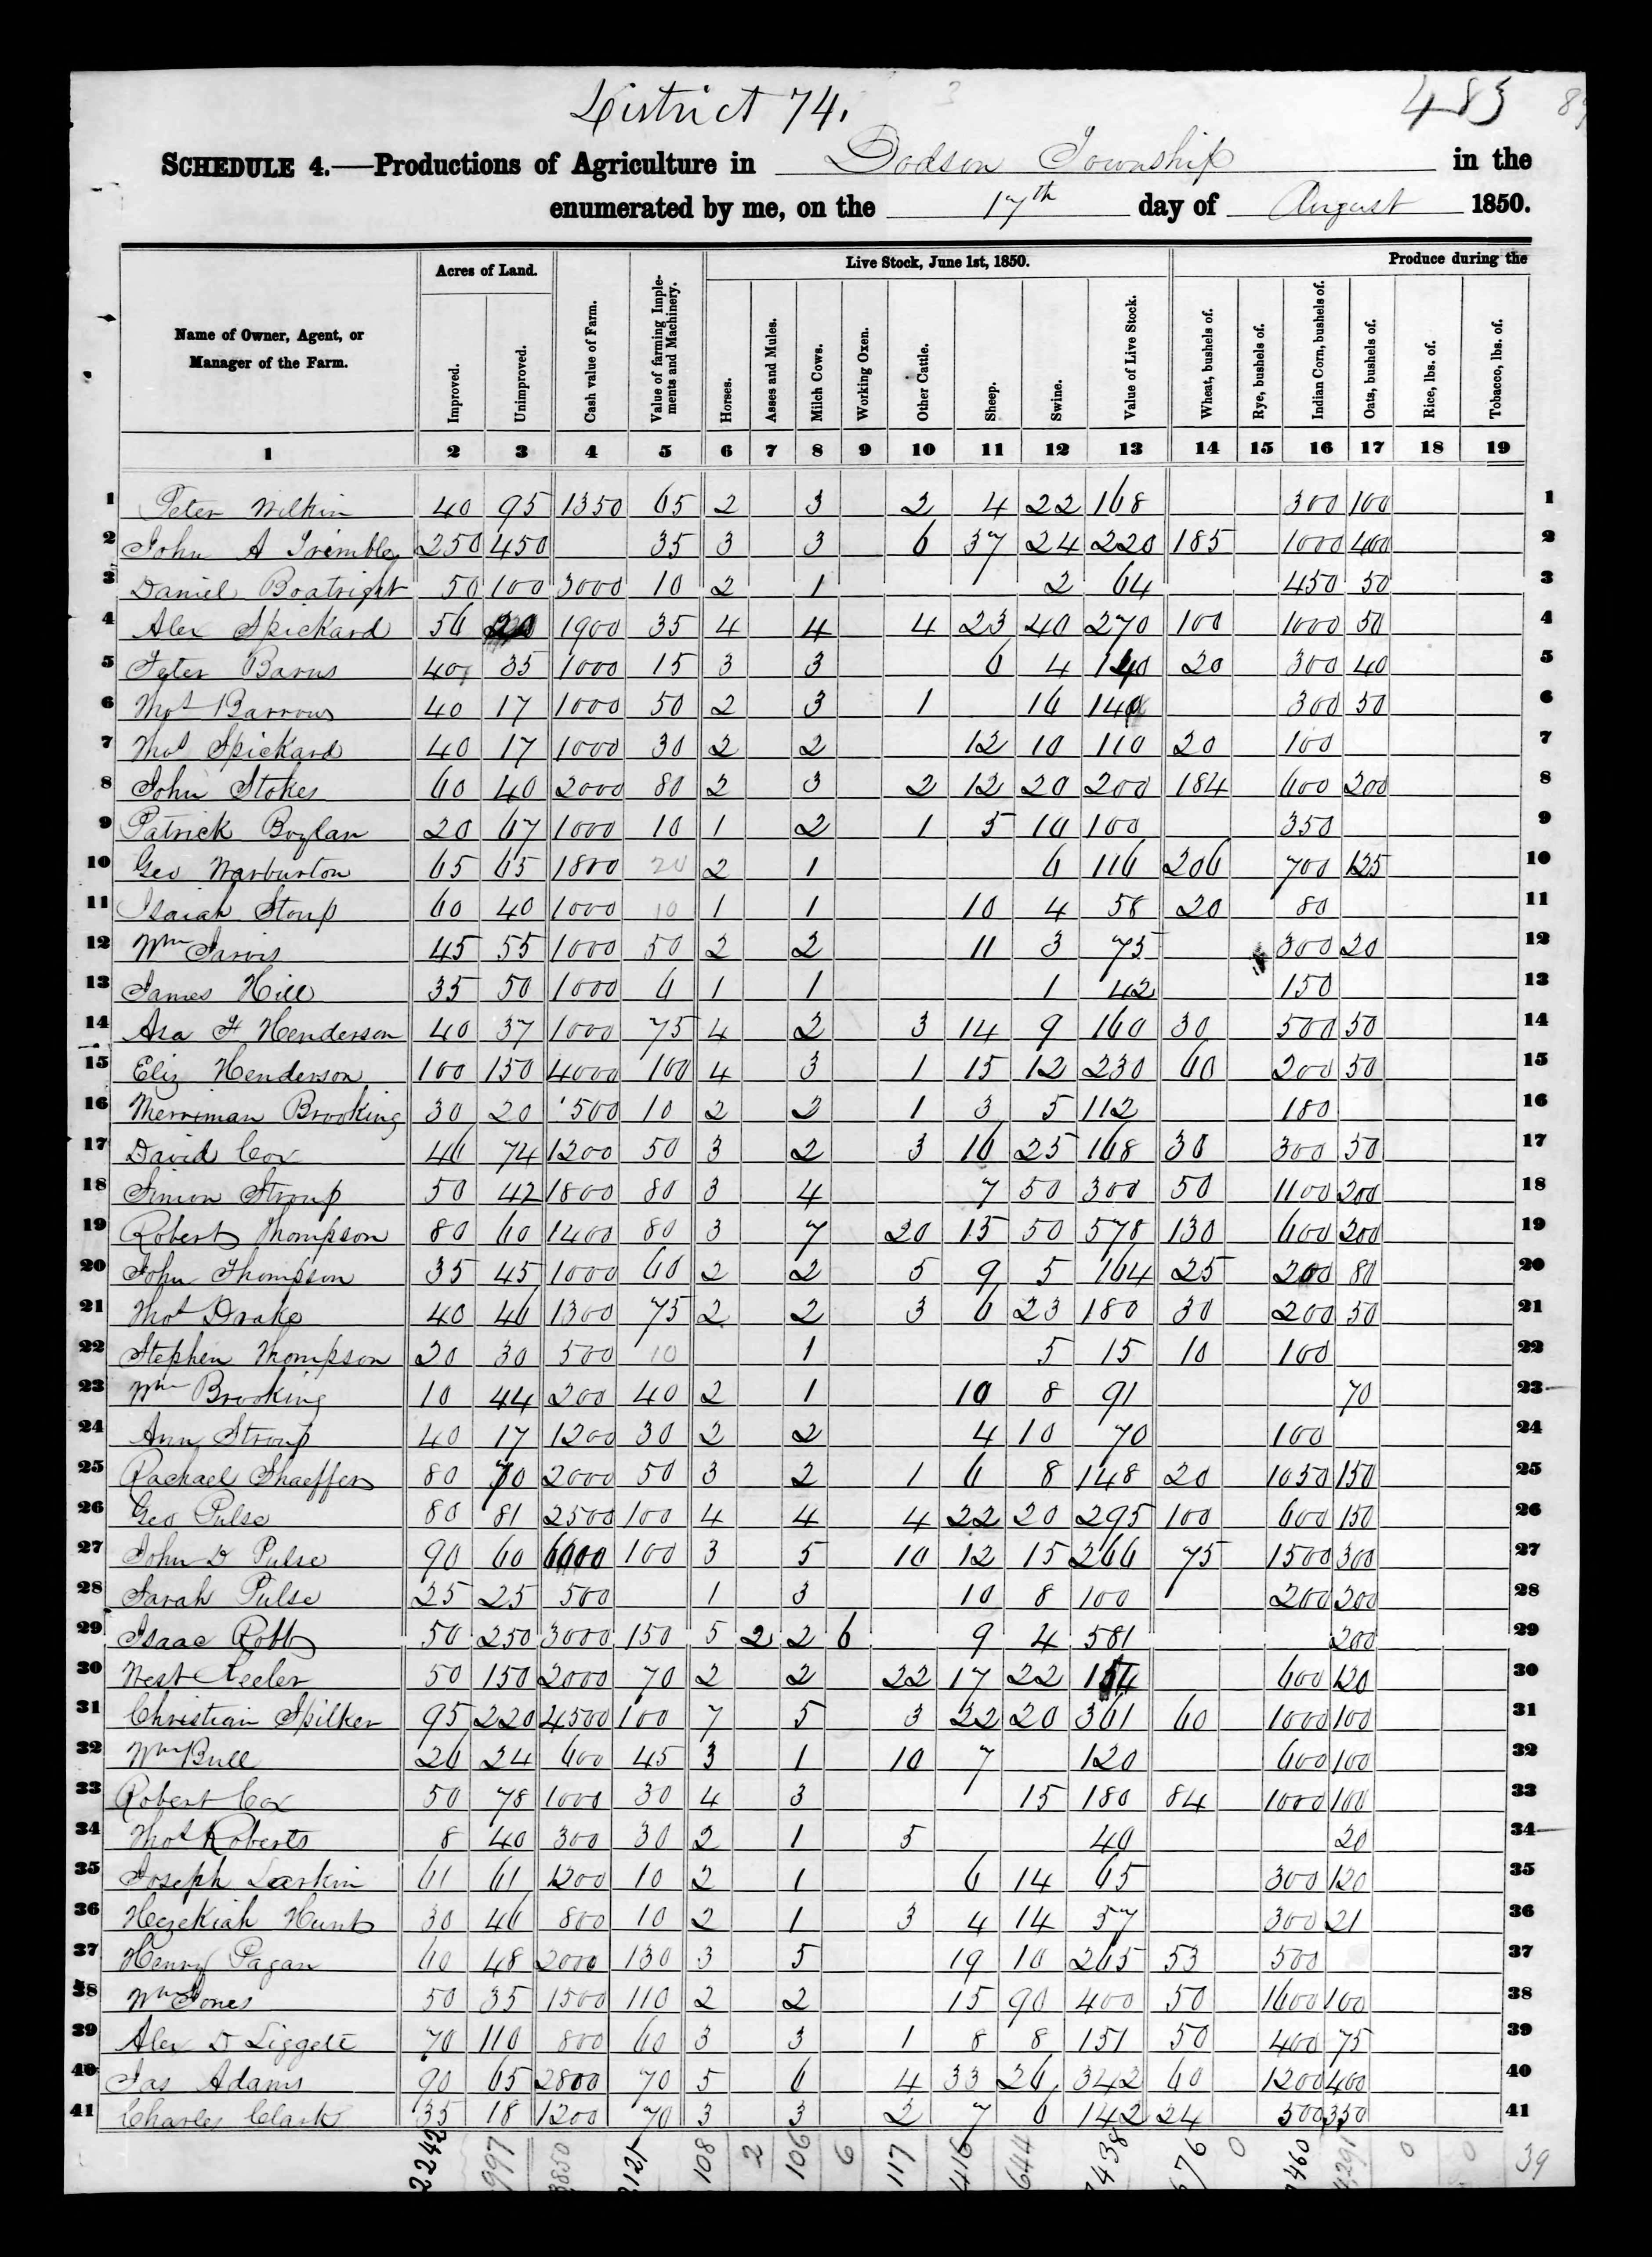 District 74.
3
483
SCHEDULE 4.—Productions of Agriculture in Dodson Township in the
enumerated by me, on the 17th day of August 1850.
Name of Owner, Agent, or Manager of the Farm.
Acres of Land.
Improved.
Unimproved.
Cash value of Farm.
Value of farming Implements and Machinery.
Live Stock, June 1st, 1850.
Horses.
Asses and Mules.
Milch Cows.
Working Oxen.
Other Cattle.
Sheep.
Swine.
Value of Live Stock.
Produce during the
Wheat, bushels of.
Rye, bushels of.
Indian Corn, bushels of.
Oats, bushels of.
Rice, lbs. of.
Tobacco, lbs. of.
1 2 3 4 5 6 7 8 9 10 11 12 13 14 15 16 17 18 19
1 Peter Wilkin 40 95 1350 65 2 3 2 4 22 168 300 100 1
2 John A Trimble 250 450 35 3 3 6 37 24 220 185 1000 400 2
3 Daniel Boatright 50 100 3000 10 2 1 2 64 450 50 3
4 Alex Spickard 56 1900 35 4 4 4 23 40 270 100 1000 50 4
5 Peter Barns 40 35 1000 15 3 3 6 4 140 20 300 40 5
6 Thos Barrows 40 17 1000 50 2 3 1 16 140 300 50 6
7 Thos Spickard 40 17 1000 30 2 2 12 10 110 20 100 7
8 John Stokes 60 40 2000 80 2 3 2 12 20 200 184 600 200 8
9 Patrick Boylan 20 67 1000 10 1 2 1 5 10 100 350 9
10 Geo Warburton 65 65 1800 20 2 1 6 116 206 700 125 10
11 Isaiah Stoup 60 40 1000 10 1 1 10 4 58 20 80 11
12 Wm Jarvis 45 55 1000 50 2 2 11 3 75 300 20 12
13 James Hill 35 50 1000 6 1 1 1 42 150 13
14 Asa H Henderson 40 37 1000 75 4 2 3 14 9 160 30 500 50 14
15 Eliz Henderson 100 150 4000 100 4 3 1 15 12 230 60 200 50 15
16 Merriman Brooking 30 20 500 10 2 2 1 3 5 112 180 16
17 David Cox 46 74 1200 50 3 2 3 16 25 168 30 300 50 17
18 Simon Stroup 50 42 1800 80 3 4 7 50 300 50 1100 200 18
19 Robert Thompson 80 60 1400 80 3 7 20 15 50 578 130 600 200 19
20 John Thompson 35 45 1000 60 2 2 5 9 5 164 25 200 80 20
21 Thos Drake 40 46 1300 75 2 2 3 6 23 180 30 200 50 21
22 Stephen Thompson 20 30 500 10 1 5 15 10 100 22
23 Wm Brooking 10 44 200 40 2 1 10 8 91 70 23
24 Ann Stroup 40 17 1200 30 2 2 4 10 70 100 24
25 Rachael Shaeffer 80 70 2000 50 3 2 1 6 8 148 20 1050 150 25
26 Geo Pulse 80 81 2500 100 4 4 4 22 20 295 100 600 150 26
27 John D Pulse 90 60 6000 100 3 5 10 12 15 266 75 1500 300 27
28 Sarah Pulse 25 25 500 1 3 10 8 100 200 200 28
29 Isaac Robb 50 250 3000 150 5 2 2 6 9 4 581 200 29
30 West 50 150 2000 70 2 2 22 17 22 154 600 120 30
31 Christian Spilker 95 220 4500 100 7 5 3 22 20 361 60 1000 100 31
32 Wm Bull 26 24 600 45 3 1 10 7 120 600 100 32
33 Robert Cox 50 78 1000 30 4 3 15 180 84 1000 100 33
34 Thos Roberts 8 40 300 30 2 1 5 40 20 34
35 Joseph Larkin 61 61 1200 10 2 1 6 14 65 300 120 35
36 Hezekiah Hunt 30 46 800 10 2 1 3 4 14 57 300 21 36
37 Henry Pagan 60 48 2000 130 3 5 19 10 265 53 500 37
38 Wm Jones 50 35 1500 110 2 2 15 90 400 50 1600 100 38
39 Alex D Liggett 70 110 800 60 3 3 1 8 8 151 50 400 75 39
40 Jas Adams 90 65 2800 70 5 6 4 33 26 342 60 1200 400 40
41 Charles Clark 35 18 1200 70 3 3 2 7 6 142 24 500 350 41
2242 997 3850 2121 108 2 106 6 117 416 644 7438 676 0 460 4291 0 0 39